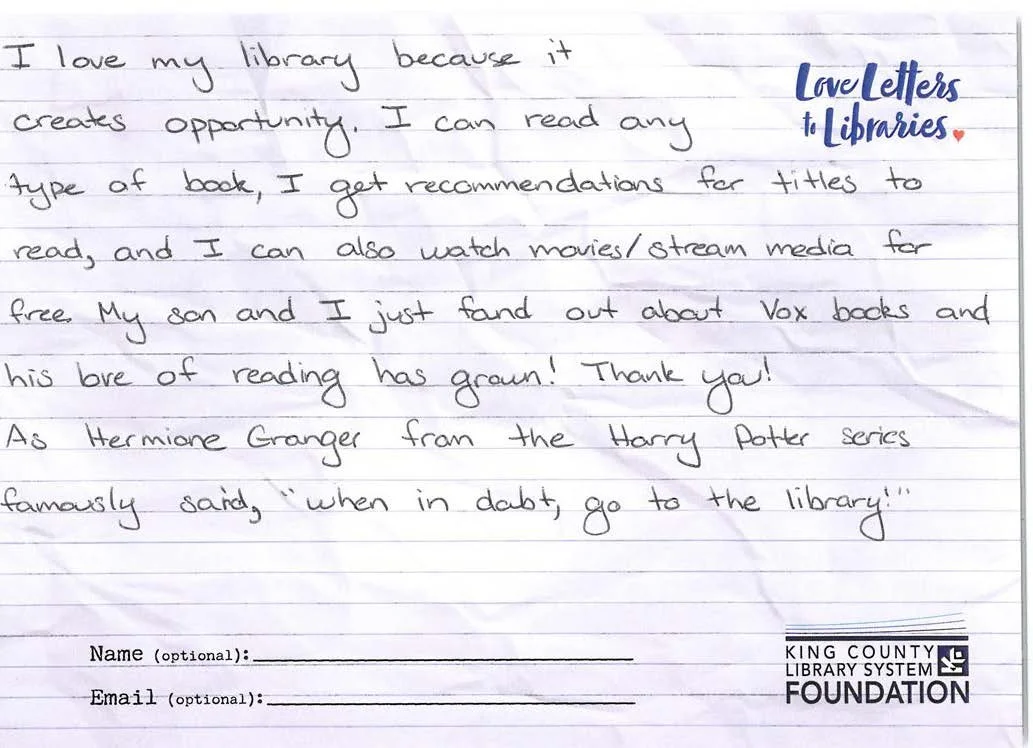 I love my library because it
Love Letters
to Libraries.
creates opportunity. I can read any
type of book, I get recommendations for titles to
read, and I can also watch movies/stream media for
free. My son and I just found out about Vox books and
his love of reading has grown! Thank you!
As Hermione Granger from the Harry Potter series
famously said, "when in doubt, go to the library!"
Name (optional):
Email (optional):
KING COUNTY
LIBRARY SYSTEM
FOUNDATION